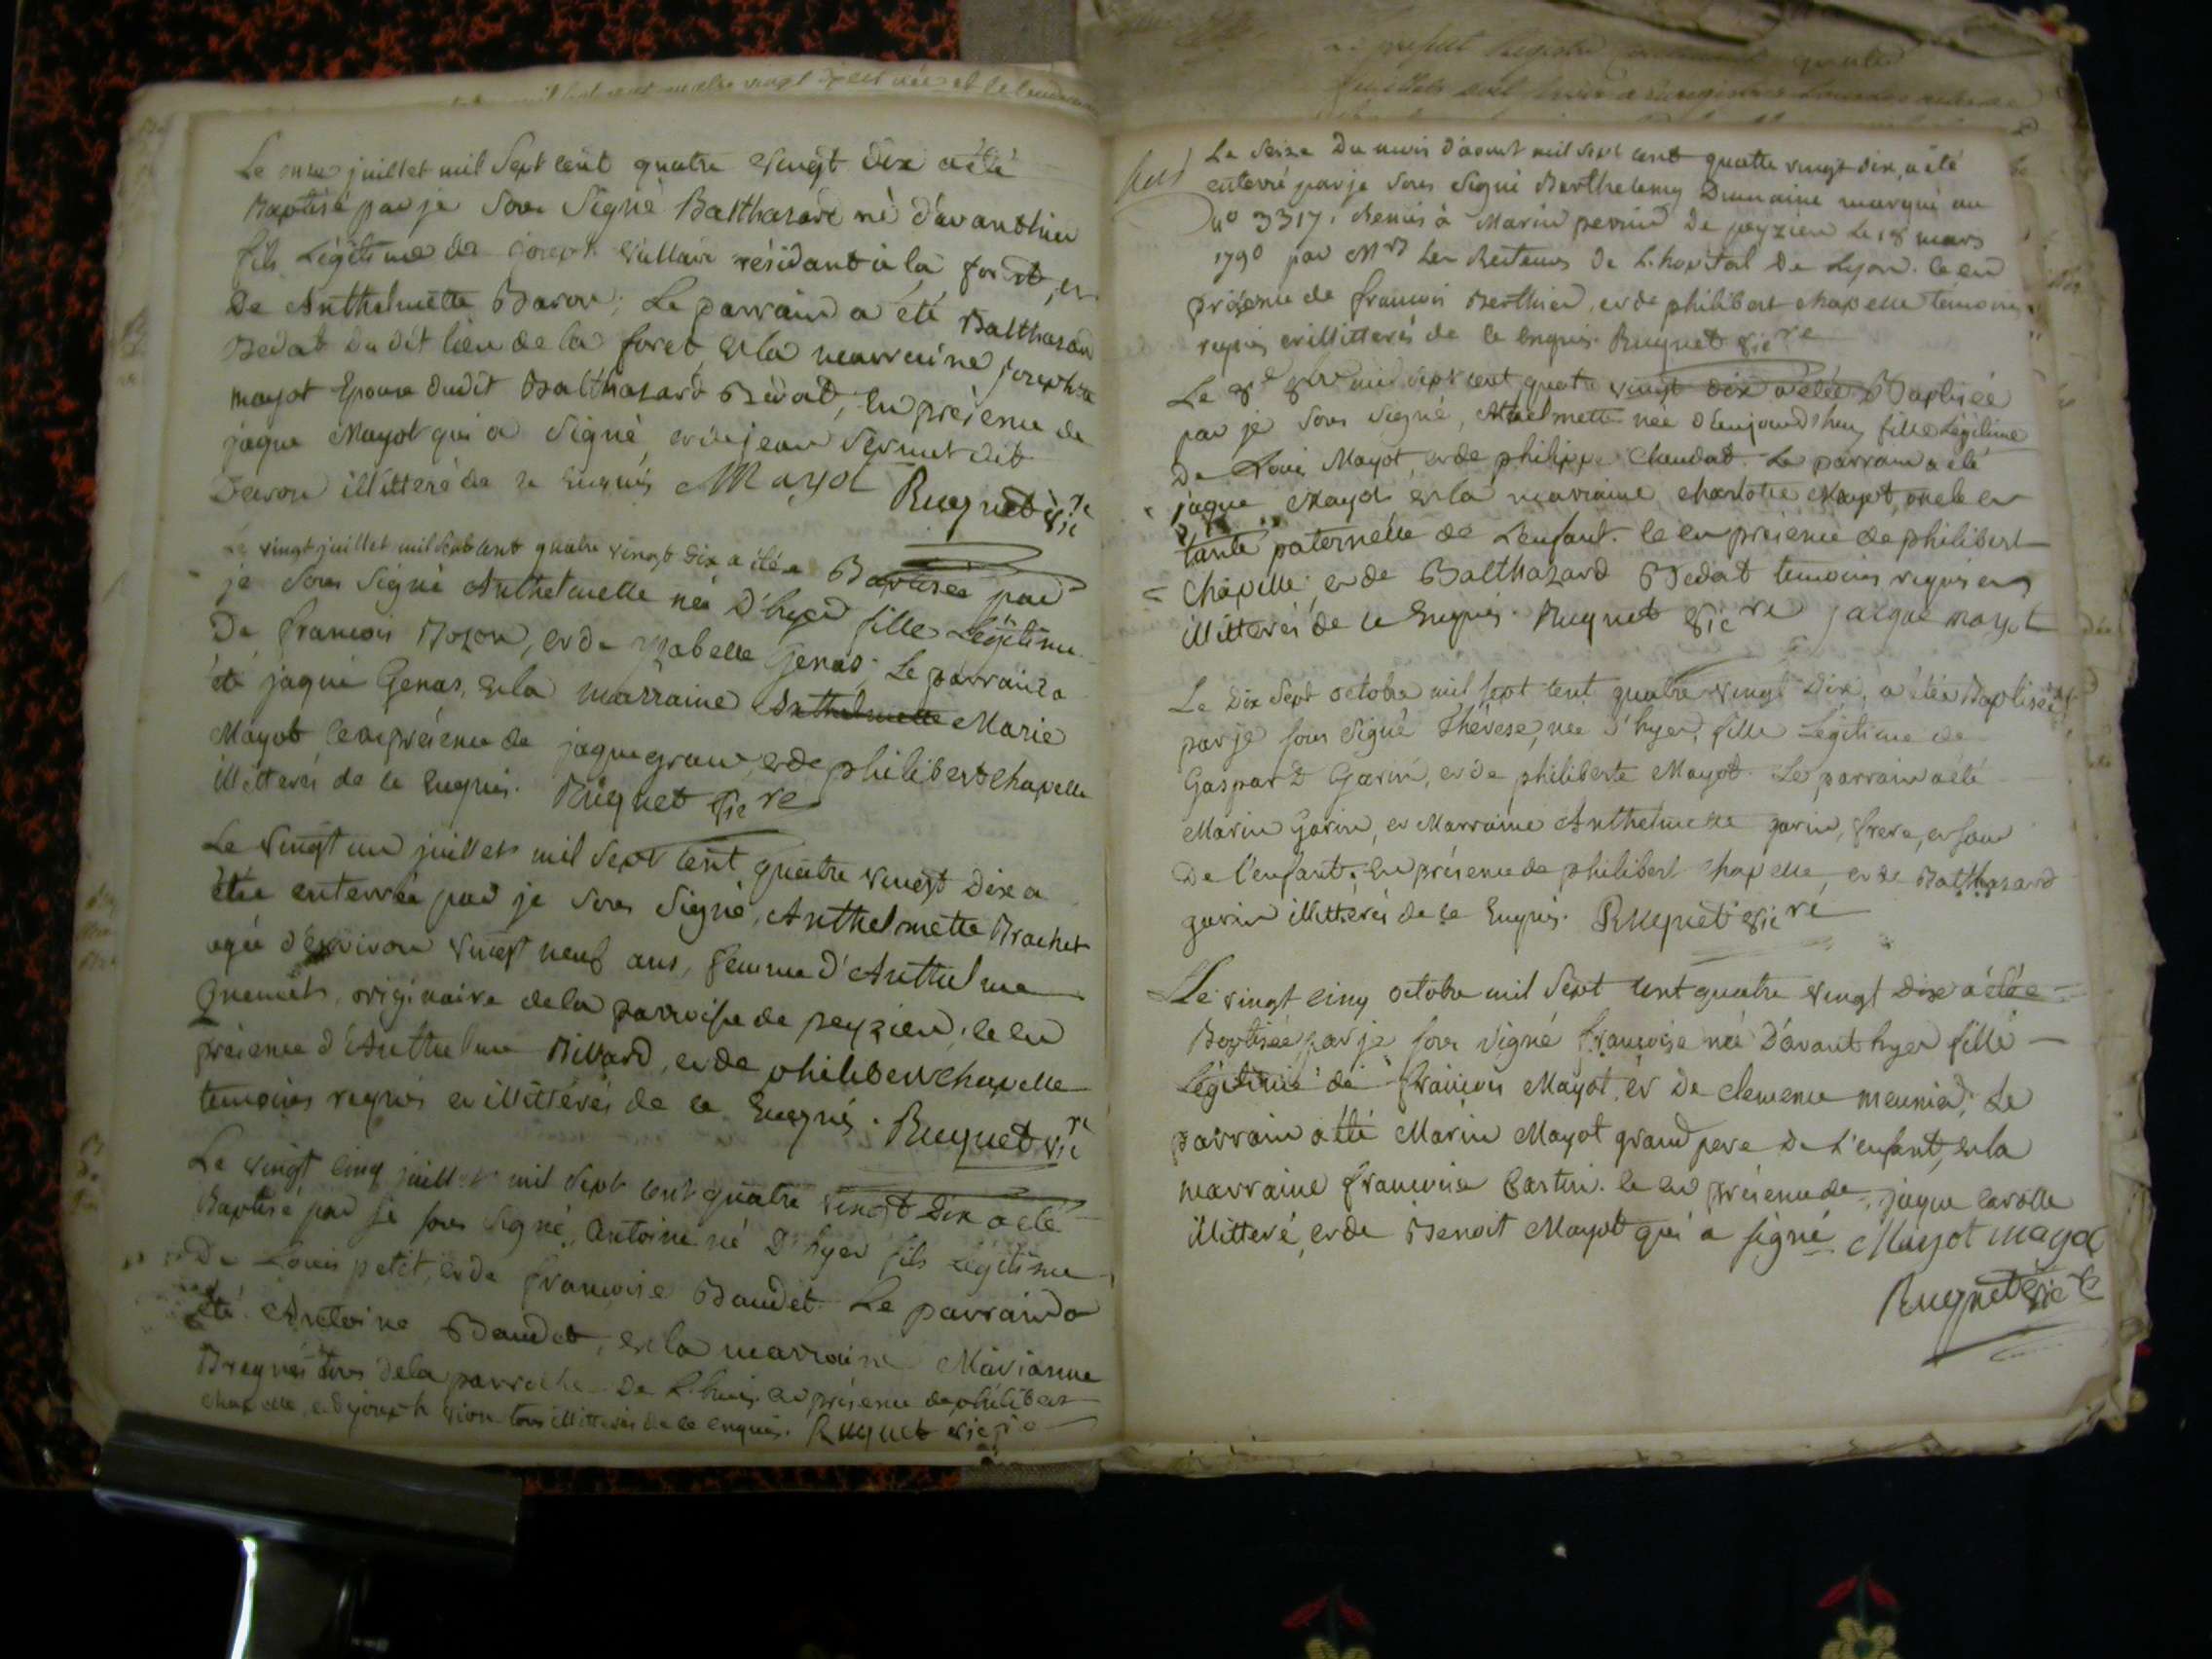 Le onze juillet mil Sept cent quatre vingt dix a été
Baptisé par je Sous Signé Balthazard né d'avanthier
fils Légitime de joseph Vullain résidant à la forêt, et
De Anthelmette Baron; Le parrain a été Balthazard
Bedat du dit lieu de la foret et la marraine joseph
mayot Epouse dudit Balthazard Bédat, En présence de
jaque Mayot qui a Signé, et de jean dit
illitteré de ce Enquis Mayot Ruqnet vic re
Le vingt juillet mil Sept cent quatre vingt dix a étée Baptisée par
je Sous Signé Anthelmette née D'hyer fille Légitime
De francois Bozon, et de yzabelle Genas; Le parrain a
été jaque Genas, et la marraine Anthelmette Marie
Mayot ce en présence de jaque et de philibert chapelle
illitterés de ce Enquis. Ruqnet vic re
Le vingt un juillet mil Sept cent quatre vingt Dix a
étée enterrée par je Sous Signé, Anthelmette Brachet
agée d'environ vingt neuf ans, femme d'Anthelme
originaire de la parroisse de peyzieu, ce en
présence d'Anthelme Billard, et de philibert chapelle
temoins requis et illitterés de ce Enquis. Ruqnet vic re
Le vingt cinq juillet mil Sept cent quatre vingt Dix a été
Baptisé par je sous Signé, Antoine né D'hyer fils Légitime
De Louis petit, et de francoise Baudet. Le parrain a
été Antoine Baudet, et la marraine Marianne
tous de la parroche De en présence de philibert
chapelle, et de joseph tous illitterés de ce enquis. Ruqnet vic re
Le Seize Du mois d'aoust mil sept cent quatre vingt dix, a été
enterré par je Sous Signé Barthelemy Dumaine marqué au
no 3317. Remis à Marin perrin De peyzieu Le 18 mars
1790 par Mrs Les Recteurs De L'hopital De Lyon. ce en
présence de francois Berthier, et de philibert chapelle témoins
requis et illitterés de ce enquis. Ruqnet vic re
Le 8e 8bre mil sept cent quatre vingt dix a étée Baptisée
par je Sous Signé, Athelmette née D'aujourd'huy fille Légitime
De Loui Mayot, et de philippe Claudat. Le parrain a été
jaque Mayot et la marraine charlotte Mayot, oncle et
tante paternelle de L'enfant. ce en présence de philibert
Chapelle, et de Balthazard Bedat temoins requis et
illitterés de ce Enquis. Ruqnet vic re jacque mayot
Le Dix Sept octobre mil sept cent quatre vingt Dix, a étée Baptisée
par je sous Signé Thérese, née d'hyer, fille Légitime de
Gaspard Garin, et de philiberte Mayot. Le parrain a été
Marin Garin, et Marraine Anthelmette garin, frere, et sœur
De l'enfant. En présence de philibert chapelle, et de Balthazard
garin illitterés de ce Enquis. Ruqnet vic re
Le vingt cinq octobre mil Sept cent quatre vingt Dix a étée
Baptisée par je sous signé françoise née D'avant hyer fille
Légitime de françois Mayot, et De clemence meunier. Le
parrain a été Marin Mayot grand pere De L'enfant, et la
marraine francoise Castin. ce en présence de jaque carolle
illitteré, et de Benoit Mayot qui a signé Mayot mayot
Ruqnet vic re